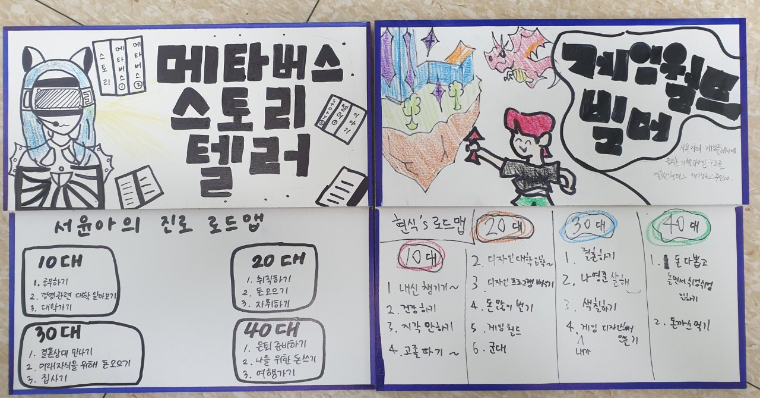 스토리
메타버스①
메타버스②
메타버스
스토리
텔러
게임월드
빌더
서윤아의 진로 로드맵
10대
2. 경영관련 대학 알아보기
3. 대학가기
20대
1. 취직하기
2. 돈모으기
3. 자취하기
30대
1. 결혼상대 만나기
2. 미래자식을 위해 돈모으기
3. 집사기
40대
1. 은퇴 준비하기
2. 나를 위한 돈쓰기
3. 여행가기
현식's 로드맵
10대
1 내신 챙기기~
2. 건강하기
3. 지각 안하기
4. 고졸하기~
20대
3. 디자인 프로그램 배우기
4. 돈많이 벌기
5. 게임 월드
6. 군대
30대
3. 색칠하기
4. 게임 디자인
내가
40대
1. 돈 다 뽑고
2. 돈까스 먹기